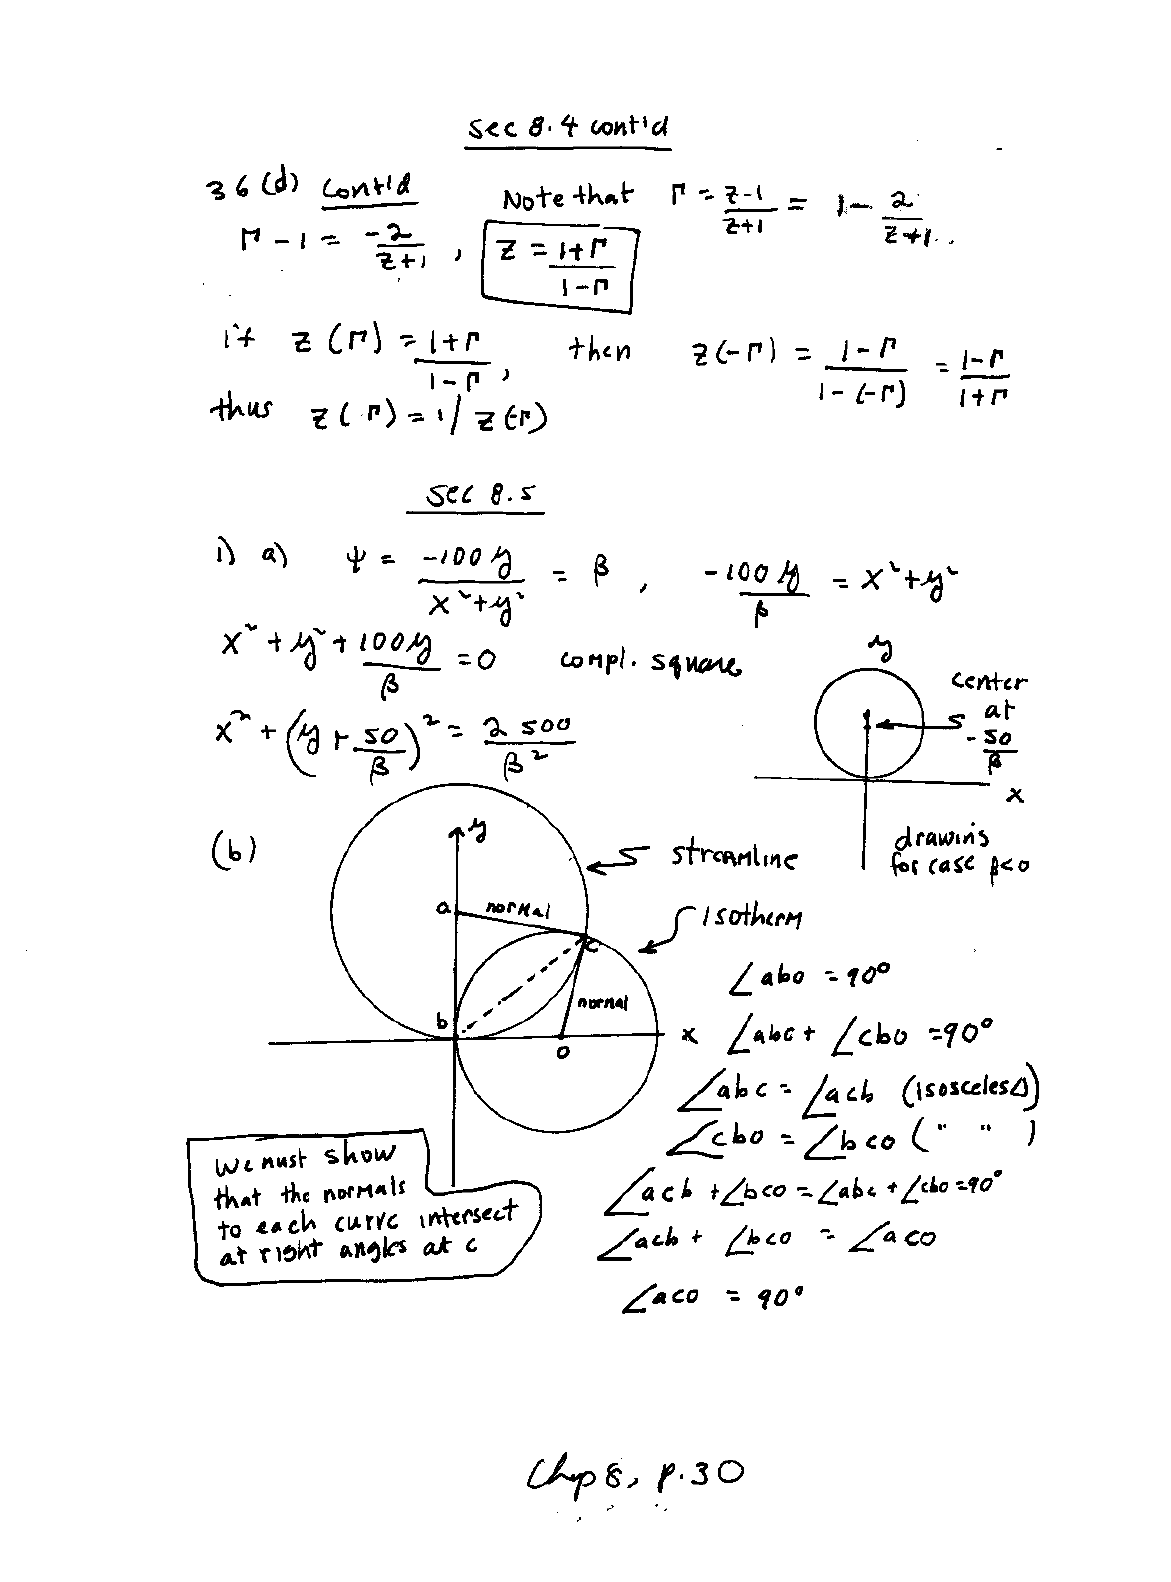 Sec 8.4 cont'd
36(d) cont'd Note that Γ = (z-1)/(z+1) = 1 - 2/(z+1)
Γ - 1 = -2/(z+1) , z = (1+Γ)/(1-Γ)
if z(Γ) = (1+Γ)/(1-Γ), then z(-Γ) = (1-Γ)/(1-(-Γ)) = (1-Γ)/(1+Γ)
thus z(Γ) = 1/z(-Γ)
Sec 8.5
1) a) ψ = -100y/(x²+y²) = β , -100y/β = x²+y²
x² + y² + 100y/β = 0 compl. square
x² + (y + 50/β)² = 2500/β²
y
center
at
-50/β
x
drawing
for case β<0
(b)
y
streamline
a normal
isotherm
c
normal
b
x
o
∠abo = 90°
∠abc + ∠cbo = 90°
∠abc = ∠acb (isosceles Δ)
∠cbo = ∠bco ( " " )
∠acb + ∠bco = ∠abc + ∠cbo = 90°
∠acb + ∠bco = ∠aco
∠aco = 90°
We must show
that the normals
to each curve intersect
at right angles at c
Chap 8, p.30